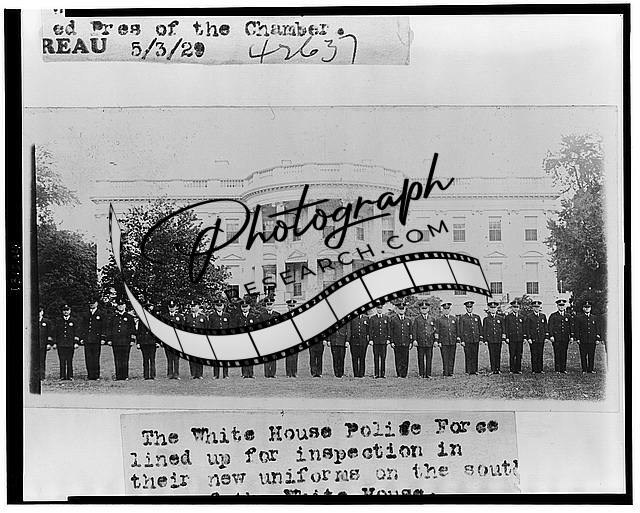 ed Pres of the Chamber.
REAU 5/3/29 42637
Photograph
RESEARCH.COM
The White House Police Force
lined up for inspection in
their new uniforms on the south
of the White House.